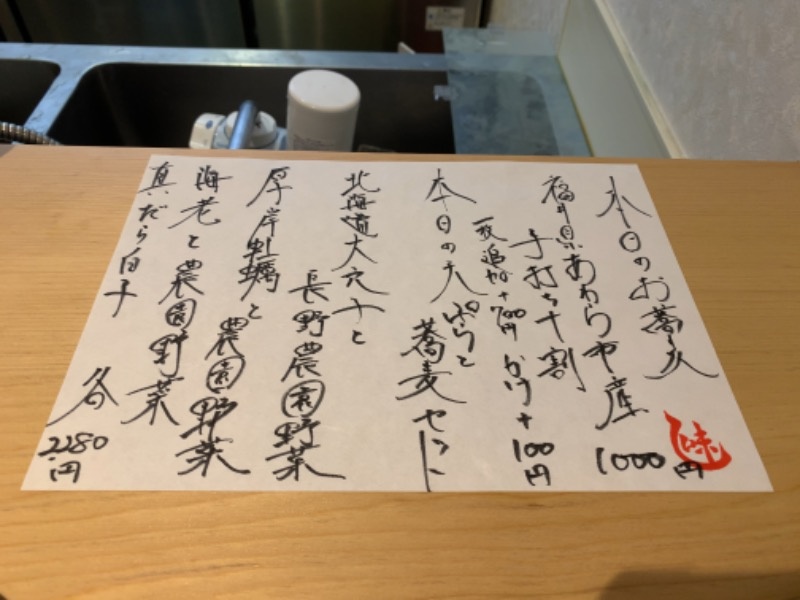 本日のお蕎麦
福井県あわら市産
1000円
手打ち十割
一枚追加+700円 かけ+100円
本日の天ぷらと
蕎麦セット
北海道大穴子と
長野農園野菜
厚岸牡蠣と
農園野菜
海老と農園野菜
真だら白子
各
2280円
味